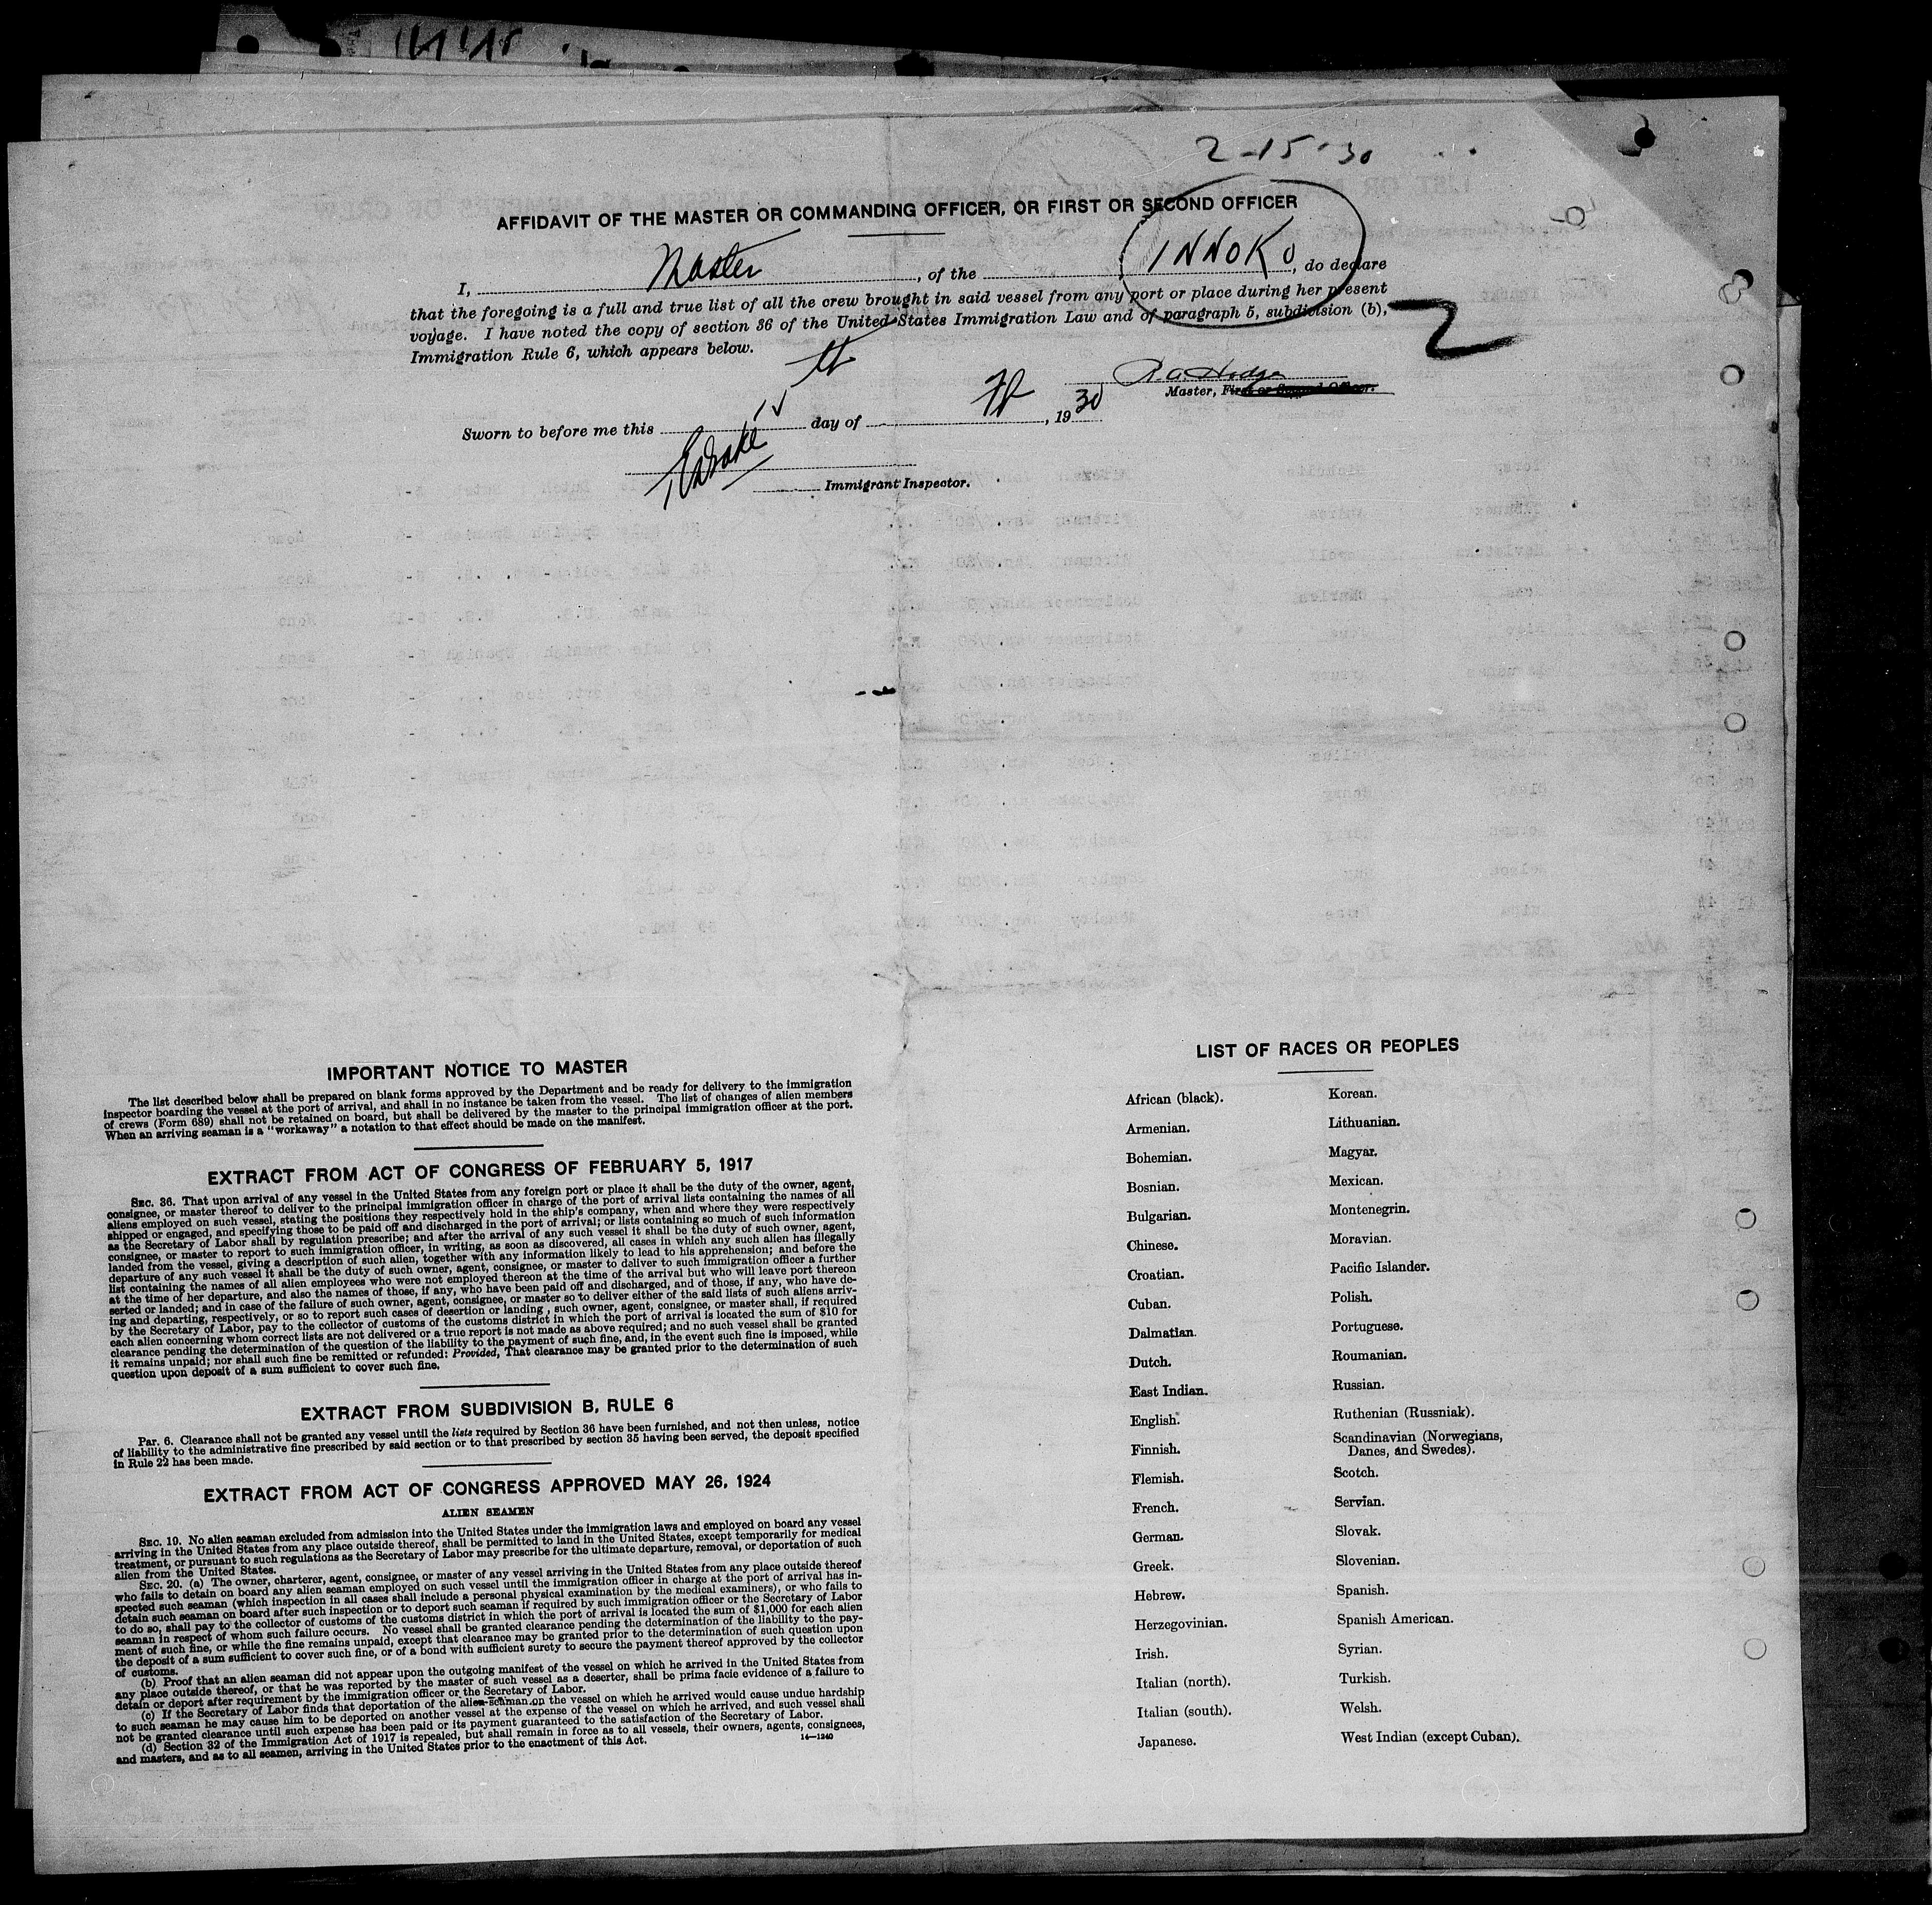 2-15-30
AFFIDAVIT OF THE MASTER OR COMMANDING OFFICER, OR FIRST OR SECOND OFFICER
I, Master, of the INNOKO, do declare
that the foregoing is a full and true list of all the crew brought in said vessel from any port or place during her present
voyage. I have noted the copy of section 36 of the United States Immigration Law and of paragraph 5, subdivision (b),
Immigration Rule 6, which appears below.
2
Master, First or Second Officer.
Sworn to before me this 15 day of , 1930
Immigrant Inspector.
IMPORTANT NOTICE TO MASTER
The list described below shall be prepared on blank forms approved by the Department and be ready for delivery to the immigration
inspector boarding the vessel at the port of arrival, and shall in no instance be taken from the vessel. The list of changes of alien members
of crews (Form 689) shall not be retained on board, but shall be delivered by the master to the principal immigration officer at the port.
When an arriving seaman is a "workaway" a notation to that effect should be made on the manifest.
EXTRACT FROM ACT OF CONGRESS OF FEBRUARY 5, 1917
SEC. 36. That upon arrival of any vessel in the United States from any foreign port or place it shall be the duty of the owner, agent,
consignee, or master thereof to deliver to the principal immigration officer in charge of the port of arrival lists containing the names of all
aliens employed on such vessel, stating the positions they respectively hold in the ship's company, when and where they were respectively
shipped or engaged, and specifying those to be paid off and discharged in the port of arrival; or lists containing so much of such information
as the Secretary of Labor shall by regulation prescribe; and after the arrival of any such vessel it shall be the duty of such owner, agent,
consignee, or master to report to such immigration officer, in writing, as soon as discovered, all cases in which any such alien has illegally
landed from the vessel, giving a description of such alien, together with any information likely to lead to his apprehension; and before the
departure of any such vessel it shall be the duty of such owner, agent, consignee, or master to deliver to such immigration officer a further
list containing the names of all alien employees who were not employed thereon at the time of the arrival but who will leave port thereon
at the time of her departure, and also the names of those, if any, who have been paid off and discharged, and of those, if any, who have de-
serted or landed; and in case of the failure of such owner, agent, consignee, or master so to deliver either of the said lists of such aliens arriv-
ing and departing, respectively, or so to report such cases of desertion or landing, such owner, agent, consignee, or master shall, if required
by the Secretary of Labor, pay to the collector of customs of the customs district in which the port of arrival is located the sum of $10 for
each alien concerning whom correct lists are not delivered or a true report is not made as above required; and no such vessel shall be granted
clearance pending the determination of the question of the liability to the payment of such fine, and, in the event such fine is imposed, while
it remains unpaid; nor shall such fine be remitted or refunded: Provided, That clearance may be granted prior to the determination of such
question upon deposit of a sum sufficient to cover such fine.
EXTRACT FROM SUBDIVISION B, RULE 6
Par. 6. Clearance shall not be granted any vessel until the lists required by Section 36 have been furnished, and not then unless, notice
of liability to the administrative fine prescribed by said section or to that prescribed by section 35 having been served, the deposit specified
in Rule 22 has been made.
EXTRACT FROM ACT OF CONGRESS APPROVED MAY 26, 1924
ALIEN SEAMEN
SEC. 19. No alien seaman excluded from admission into the United States under the immigration laws and employed on board any vessel
arriving in the United States from any place outside thereof, shall be permitted to land in the United States, except temporarily for medical
treatment, or pursuant to such regulations as the Secretary of Labor may prescribe for the ultimate departure, removal, or deportation of such
alien from the United States.
SEC. 20. (a) The owner, charterer, agent, consignee, or master of any vessel arriving in the United States from any place outside thereof
who fails to detain on board any alien seaman employed on such vessel until the immigration officer in charge at the port of arrival has in-
spected such seaman (which inspection in all cases shall include a personal physical examination by the medical examiners), or who fails to
detain such seaman on board after such inspection or to deport such seaman if required by such immigration officer or the Secretary of Labor
to do so, shall pay to the collector of customs of the customs district in which the port of arrival is located the sum of $1,000 for each alien
seaman in respect of whom such failure occurs. No vessel shall be granted clearance pending the determination of the liability to the pay-
ment of such fine, or while the fine remains unpaid, except that clearance may be granted prior to the determination of such question upon
the deposit of a sum sufficient to cover such fine, or of a bond with sufficient surety to secure the payment thereof approved by the collector
of customs.
(b) Proof that an alien seaman did not appear upon the outgoing manifest of the vessel on which he arrived in the United States from
any place outside thereof, or that he was reported by the master of such vessel as a deserter, shall be prima facie evidence of a failure to
detain or deport after requirement by the immigration officer or the Secretary of Labor.
(c) If the Secretary of Labor finds that deportation of the alien seaman on the vessel on which he arrived would cause undue hardship
to such seaman he may cause him to be deported on another vessel at the expense of the vessel on which he arrived, and such vessel shall
not be granted clearance until such expense has been paid or its payment guaranteed to the satisfaction of the Secretary of Labor.
(d) Section 32 of the Immigration Act of 1917 is repealed, but shall remain in force as to all vessels, their owners, agents, consignees,
and masters, and as to all seamen, arriving in the United States prior to the enactment of this Act.
14—1240
LIST OF RACES OR PEOPLES
African (black).
Armenian.
Bohemian.
Bosnian.
Bulgarian.
Chinese.
Croatian.
Cuban.
Dalmatian.
Dutch.
East Indian.
English.
Finnish.
Flemish.
French.
German.
Greek.
Hebrew.
Herzegovinian.
Irish.
Italian (north).
Italian (south).
Japanese.
Korean.
Lithuanian.
Magyar.
Mexican.
Montenegrin.
Moravian.
Pacific Islander.
Polish.
Portuguese.
Roumanian.
Russian.
Ruthenian (Russniak).
Scandinavian (Norwegians,
Danes, and Swedes).
Scotch.
Servian.
Slovak.
Slovenian.
Spanish.
Spanish American.
Syrian.
Turkish.
Welsh.
West Indian (except Cuban).